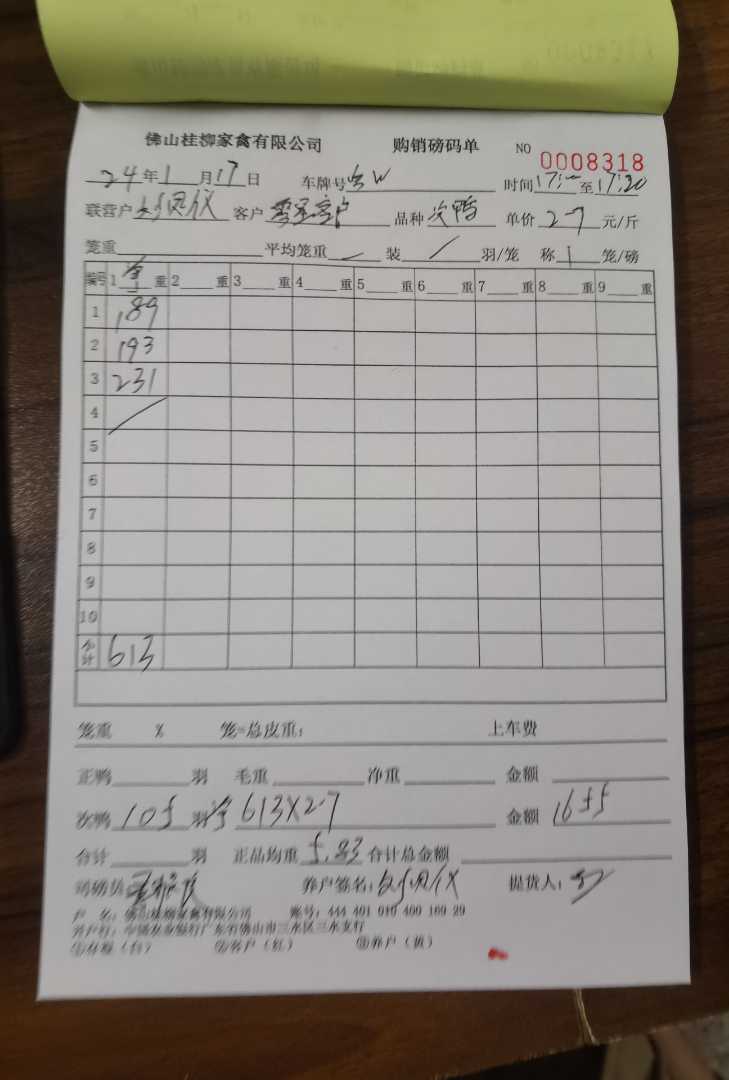 佛山桂柳家禽有限公司 购销磅码单 NO 0008318
24年1月17日 车牌号 时间17:00至17:20
联营户 客户零星客户 品种次鸭 单价2-7元/斤
笼重 平均笼重 装/羽/笼 称1笼/磅
编号 1净重 2重 3重 4重 5重 6重 7重 8重 9重
1 189
2 193
3 231
4
5
6
7
8
9
10
合计 613
笼重 % 笼=总皮重: 上车费
正鸭 羽 毛重 净重 金额
次鸭105羽净613X2.7 金额1655
合计 羽 正品均重5.83合计总金额
司磅员 养户签名: 提货人:
户 名:佛山桂柳家禽有限公司 账号:444 401 010 400 169 29
开户行:中国农业银行广东省佛山市三水区三水支行
①存根(白) ②客户(红) ③养户(黄)